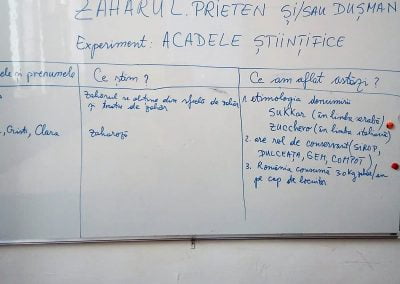 ZAHARUL. PRIETEN ȘI/SAU DUȘMAN
EXPERIMENT: ACADELE ȘTIINȚIFICE
ele și prenumele
Ce știm?
Ce am aflat astăzi?
Zahărul se obține din sfeclă de zahăr
și trestie de zahăr
, Cristi, Clara
Zaharoză
1. etimologia denumirii
SUKKAR (în limba arabă)
ZUCCHERO (în limba italiană)
2. are rol de conservant (SIROP,
DULCEAȚĂ, GEM, COMPOT)
3. România consumă 30 kg zahăr/an
pe cap de locuitor